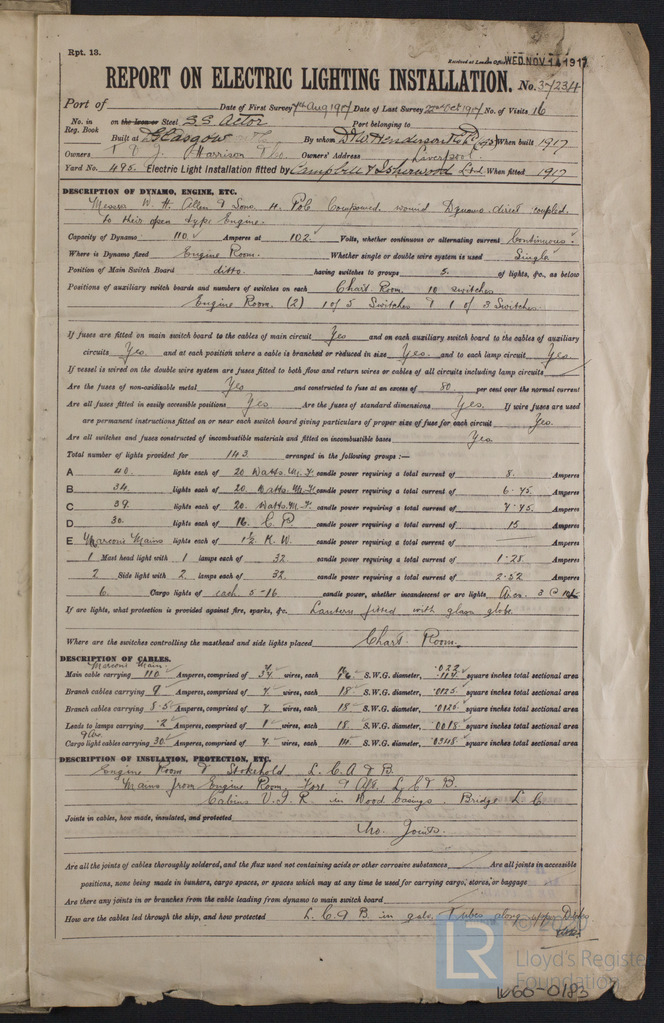 Rpt. 13.
Received at London Office WED. NOV 14 1917
REPORT ON ELECTRIC LIGHTING INSTALLATION. No. 37234
Port of Date of First Survey 7th Aug 1917 Date of Last Survey 22nd Oct 1917 No. of Visits 16
No. in on the Iron or Steel S.S. Actor Port belonging to
Reg. Book
Built at Glasgow By whom D. & W. Henderson & Co Ld When built 1917
Owners T. & J. Harrison Owners' Address Liverpool
Yard No. 495. Electric Light Installation fitted by Campbell & Isherwood Ltd When fitted 1917
DESCRIPTION OF DYNAMO, ENGINE, ETC.
Messrs W. H. Allen & Sons 4 Pole Compound wound Dynamo direct coupled
to their open type Engine.
Capacity of Dynamo 110 Amperes at 102 Volts, whether continuous or alternating current Continuous.
Where is Dynamo fixed Engine Room. Whether single or double wire system is used Single
Position of Main Switch Board ditto. having switches to groups 5. of lights, &c., as below
Positions of auxiliary switch boards and numbers of switches on each Chart Room 10 switches
Engine Room (2) 1 of 5 Switches & 1 of 3 Switches.
If fuses are fitted on main switch board to the cables of main circuit Yes and on each auxiliary switch board to the cables of auxiliary
circuits Yes. and at each position where a cable is branched or reduced in size Yes. and to each lamp circuit Yes.
If vessel is wired on the double wire system are fuses fitted to both flow and return wires or cables of all circuits including lamp circuits
Are the fuses of non-oxidisable metal Yes and constructed to fuse at an excess of 80 per cent over the normal current
Are all fuses fitted in easily accessible positions Yes. Are the fuses of standard dimensions Yes. If wire fuses are used
are permanent instructions fitted on or near each switch board giving particulars of proper size of fuse for each circuit Yes.
Are all switches and fuses constructed of incombustible materials and fitted on incombustible bases Yes
Total number of lights provided for 143. arranged in the following groups :—
A 40. lights each of 20 Watts M.F. candle power requiring a total current of 8. Amperes
B 34. lights each of 20. Watts M.F. candle power requiring a total current of 6.75 Amperes
C 39. lights each of 20. Watts M.F. candle power requiring a total current of 7.75. Amperes
D 30. lights each of 16. C.P. candle power requiring a total current of 15 Amperes
E Marconi Mains lights each of 1½ K.W. candle power requiring a total current of Amperes
1 Mast head light with 1 lamps each of 32 candle power requiring a total current of 1.28 Amperes
2 Side light with 2 lamps each of 32. candle power requiring a total current of 2.52 Amperes
6. Cargo lights of each 5-16 candle power, whether incandescent or arc lights
If arc lights, what protection is provided against fire, sparks, &c. Lantern fitted with glass globe
Where are the switches controlling the masthead and side lights placed Chart Room.
DESCRIPTION OF CABLES.
Marconi Main
Main cable carrying 110 Amperes, comprised of 37 wires, each 16 S.W.G. diameter, square inches total sectional area
Branch cables carrying 9 Amperes, comprised of 7. wires, each 18 S.W.G. diameter, .0125 square inches total sectional area
Branch cables carrying 8.5 Amperes, comprised of 7. wires, each 18 S.W.G. diameter, .0125 square inches total sectional area
Leads to lamps carrying .2 Amperes, comprised of 1 wires, each 18 S.W.G. diameter, .0018 square inches total sectional area
Cargo light cables carrying 30 Amperes, comprised of 7. wires, each 14 S.W.G. diameter, square inches total sectional area
DESCRIPTION OF INSULATION, PROTECTION, ETC.
Engine Room & Stokehold. L. C. A & B.
Mains from Engine Room, Fore & Aft. L. C & B.
Cabins V.I.R. in Wood casings. Bridge L. C.
Joints in cables, how made, insulated, and protected
No Joints.
Are all the joints of cables thoroughly soldered, and the flux used not containing acids or other corrosive substances Are all joints in accessible
positions, none being made in bunkers, cargo spaces, or spaces which may at any time be used for carrying cargo, stores, or baggage
Are there any joints in or branches from the cable leading from dynamo to main switch board
How are the cables led through the ship, and how protected L. C. A B in galv. Tubes along upper Decks
© 2020
LR
Lloyd's Register
Foundation
1660-0183